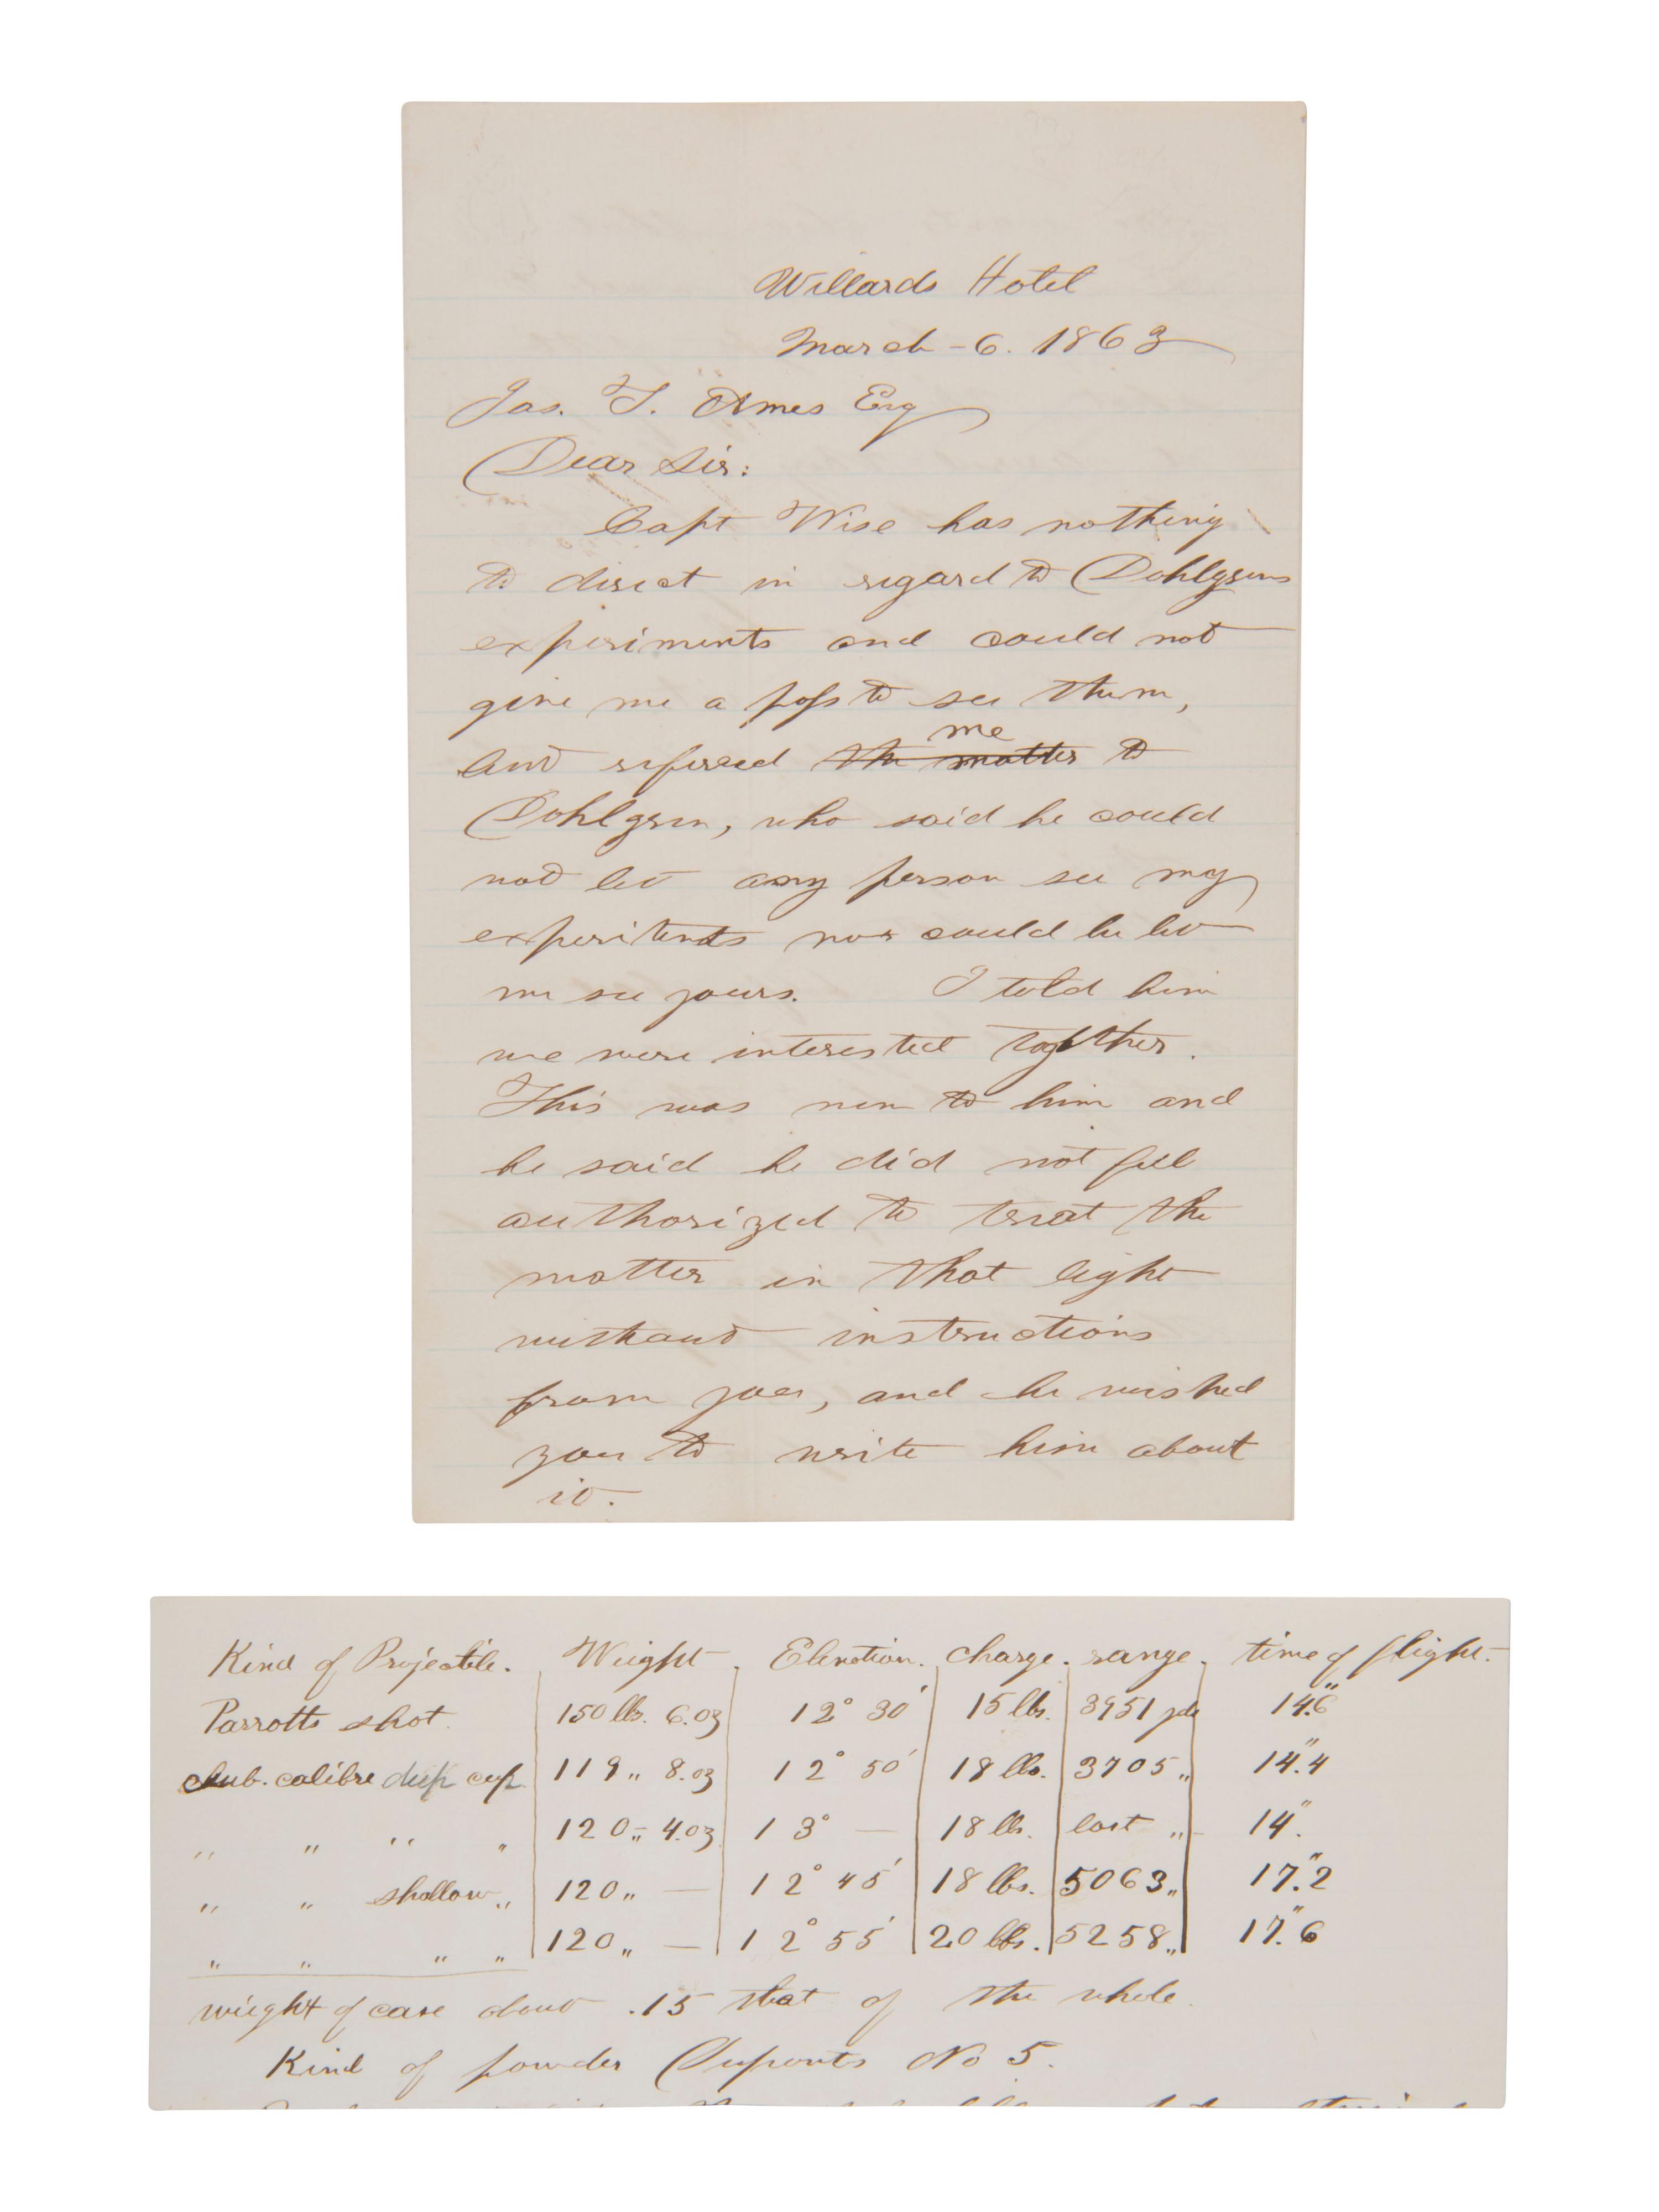 Willards Hotel
March - 6. 1863
Jas. T. Ames Esq
Dear Sir:
Capt Wise has nothing
to direct in regard to Dohlgrens
experiments and could not
give me a pass to see them,
me
and referred the matter to
Dohlgren, who said he could
not let any person see my
experitents nor could he let
me see yours. I told him
we were interested together.
This was new to him and
he said he did not feel
authorized to treat the
matter in that light
without instructions
from you, and he wished
you to write him about
it.
Kind of Projectile. Weight. Elevation. charge. range. time of flight.
Parrotts shot. 150 lbs. 6.oz 12° 30′ 15 lbs. 3951 yds 14."6
Sub. calibre deep cup 119 „ 8.oz 12° 50′ 18 lbs. 3705 „ 14."4
„ „ „ „ 120 „ 4.oz 13° — 18 lbs. lost „ 14".
„ „ shallow „ 120 „ — 12° 45′ 18 lbs. 5063 „ 17."2
„ „ „ „ 120 „ — 12° 55′ 20 lbs. 5258 „ 17."6
weight of case about .15 that of the whole.
Kind of powder Duponts No 5.